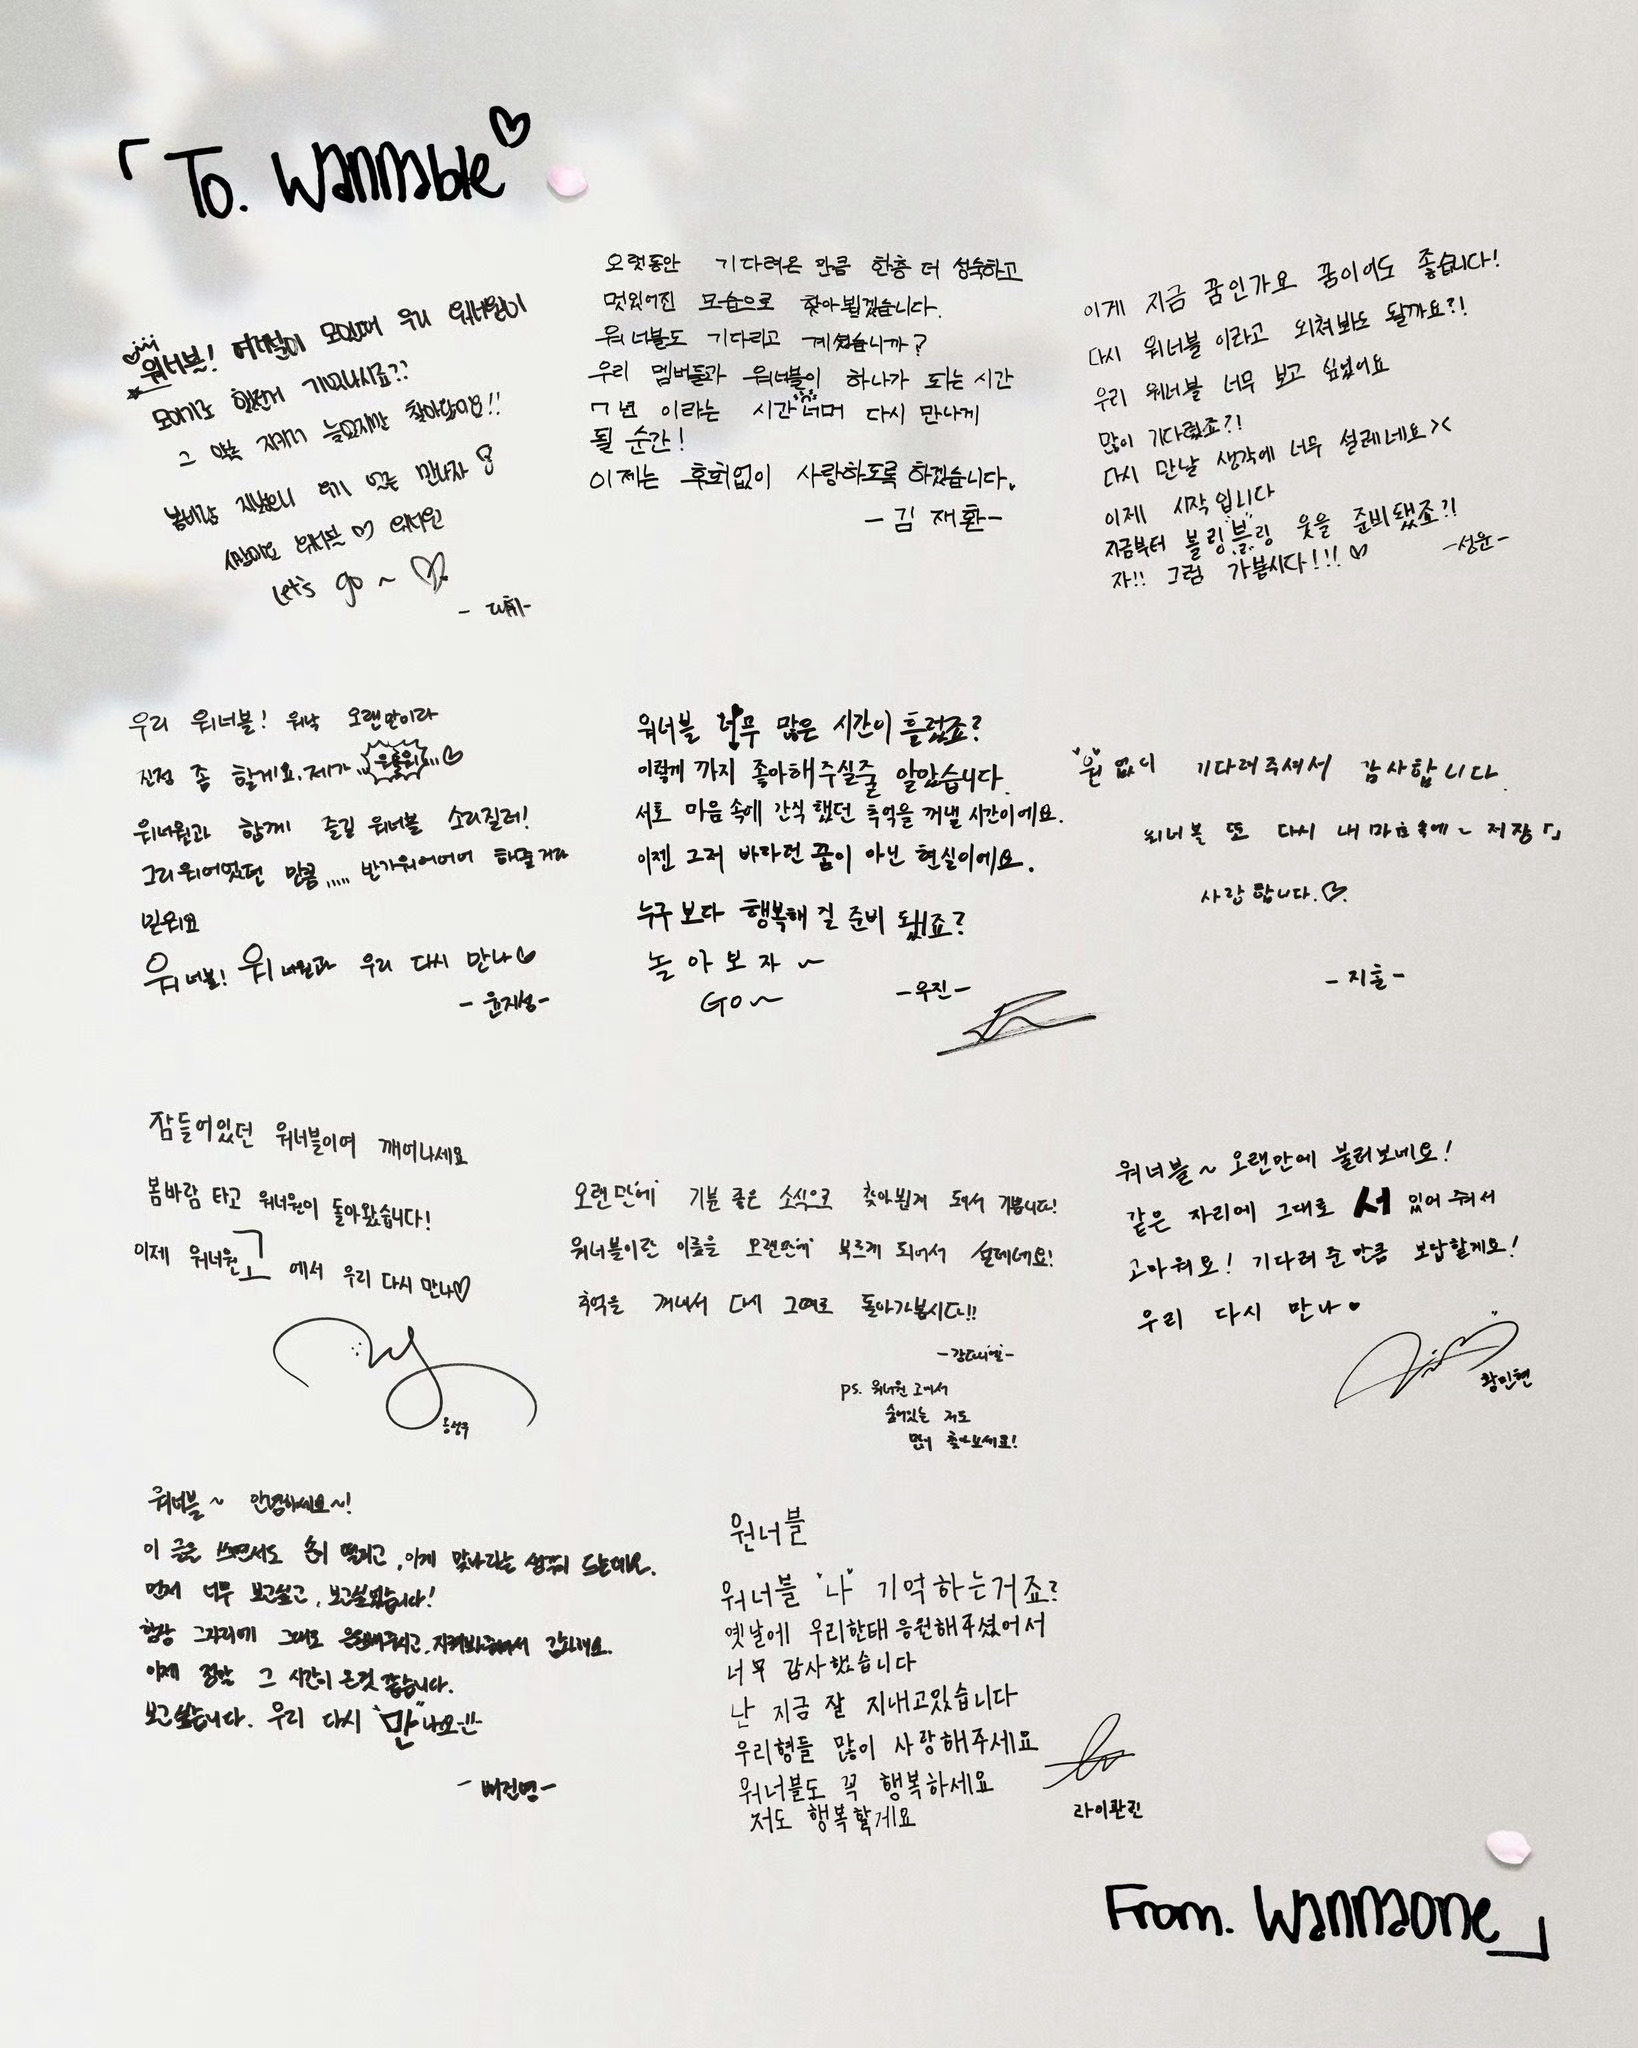 「To. Wannable♡
워너블! 여러분이 모일때 우리 워너원이
모이기로 했던거 기억나시죠??
그 약속 지키러 늦었지만 찾아왔어요!!
봄바람 지났으니 여기 있는 만나자
사랑해요 워너블♡ 워너원
Let's go ~ ♡
- 대휘-
오랫동안 기다려온 만큼 한층 더 성숙하고
멋있어진 모습으로 찾아뵙겠습니다.
워너블도 기다리고 계셨습니까?
우리 멤버들과 워너블이 하나가 되는 시간
7년 이라는 시간 너머 다시 만나게
될 순간!
이제는 후회없이 사랑하도록 하겠습니다.
- 김재환-
이게 지금 꿈인가요 꿈이어도 좋습니다!
다시 워너블 이라고 외쳐봐도 될까요?!
우리 워너블 너무 보고 싶었어요
많이 기다렸죠?!
다시 만날 생각에 너무 설레네요><
이제 시작입니다
지금부터 블링"블"링 웃을 준비됐죠?!
자!! 그럼 가봅시다!!! ♡
-성운-
우리 워너블! 워낙 오랜만이라
진정 좀 할게요. 제가 ♡
워너원과 함께 즐길 워너블 소리질러!
그리워어었던 만큼..... 반가워어어어 해줄거라
믿워요
워너블! 워너원과 우리 다시 만나♡
- 윤지성-
워너블 너무 많은 시간이 흘렀죠?
이렇게 까지 좋아해주실줄 알았습니다.
서로 마음 속에 간직했던 추억을 꺼낼 시간이에요.
이젠 그저 바라던 꿈이 아닌 현실이에요.
누구 보다 행복해 질 준비 됐죠?
놀 아 보 자 ~
GO~ -우진-
"원"없이 기다려주셔서 감사합니다.
워너블 또 다시 내 마음속에~ 저장「」
사랑합니다.♡.
- 지훈-
잠들어있던 워너블이여 깨어나세요
봄바람 타고 워너원이 돌아왔습니다!
이제 워너원고에서 우리 다시 만나♡
옹성우
오랜만에 기분 좋은 소식으로 찾아뵙게 되어서 기쁩니다!
워너블이란 이름을 오랜만에 부르게 되어서 설레네요!
추억을 꺼내서 다시 그때로 돌아가봅시다!!
- 강다니엘-
ps. 워너원 고에서
숨어있는 저도
많이 찾아보세요!
워너블~ 오랜만에 불러보네요!
같은 자리에 그대로 서 있어 줘서
고마워요! 기다려 준 만큼 보답할게요!
우리 다시 만나♥
황민현
워너블~ 안녕하세요~!
이 글을 쓰면서도 손이 떨리고, 이게 맞나라는 생각이 드는데요.
먼저 너무 보고싶고, 보고싶었습니다!
항상 그자리에 그대로 응원해주시고, 지켜봐주셔서 감사해요.
이제 정말 그 시간이 온것 같습니다.
보고싶습니다. 우리 다시 "만"나요!!
- 배진영-
원너블
워너블 "나" 기억하는거죠?
옛날에 우리한태 응원해주셨어서
너무 감사했습니다
난 지금 잘 지내고있습니다
우리형들 많이 사랑해주세요
워너블도 꼭 행복하세요
저도 행복할게요
라이관린
From. Wannaone」